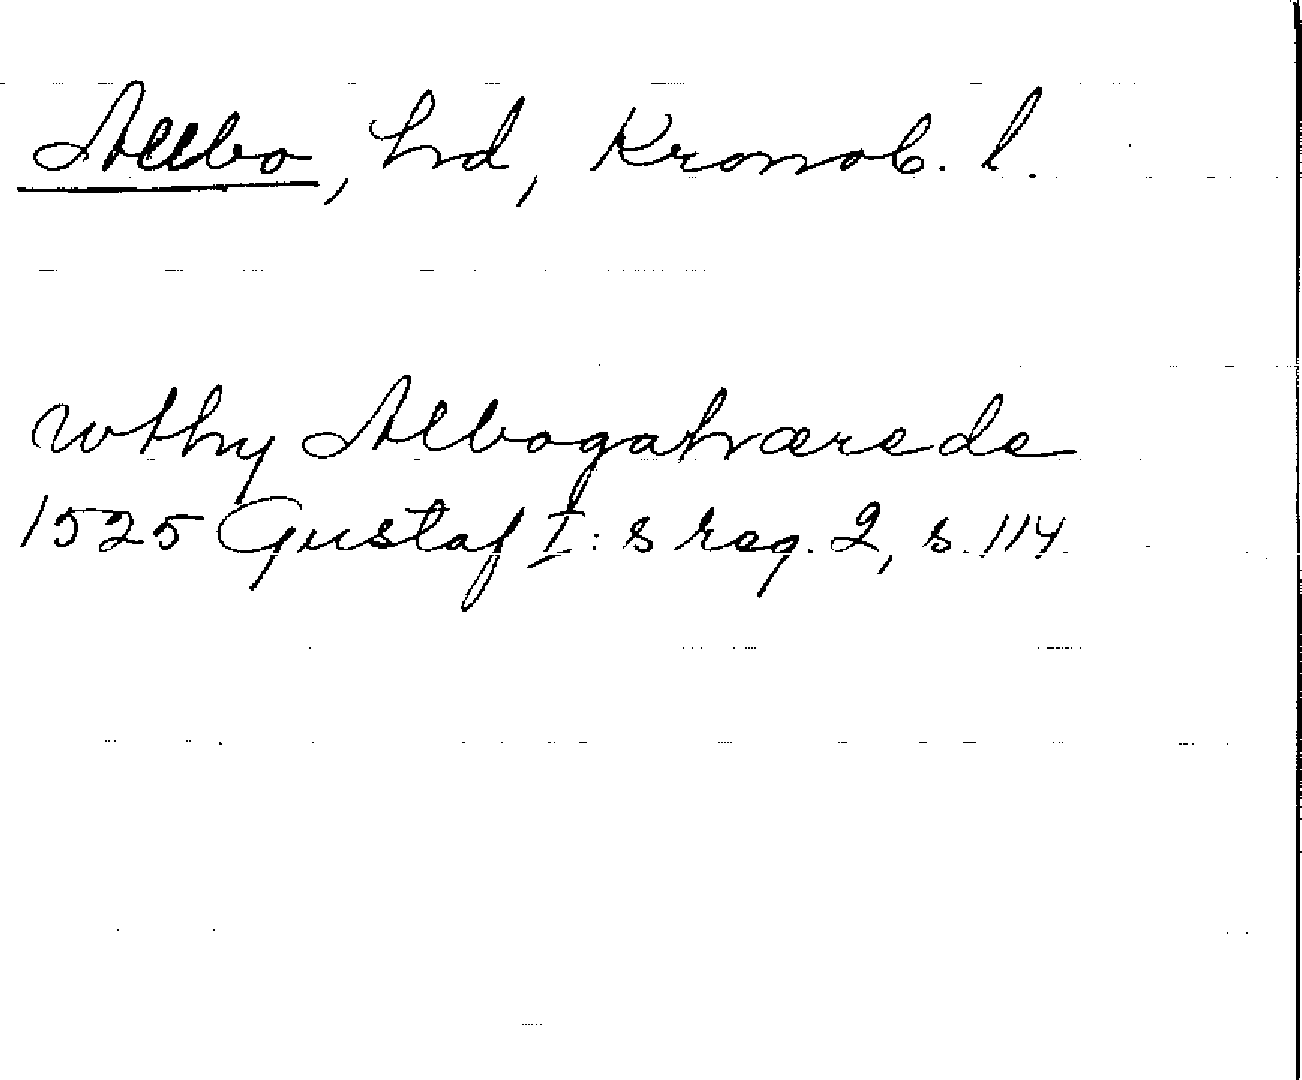 Allbo, hd, Kronob. l.
wthy Albogahærede
1525 Gustaf I:s reg. 2, s. 114